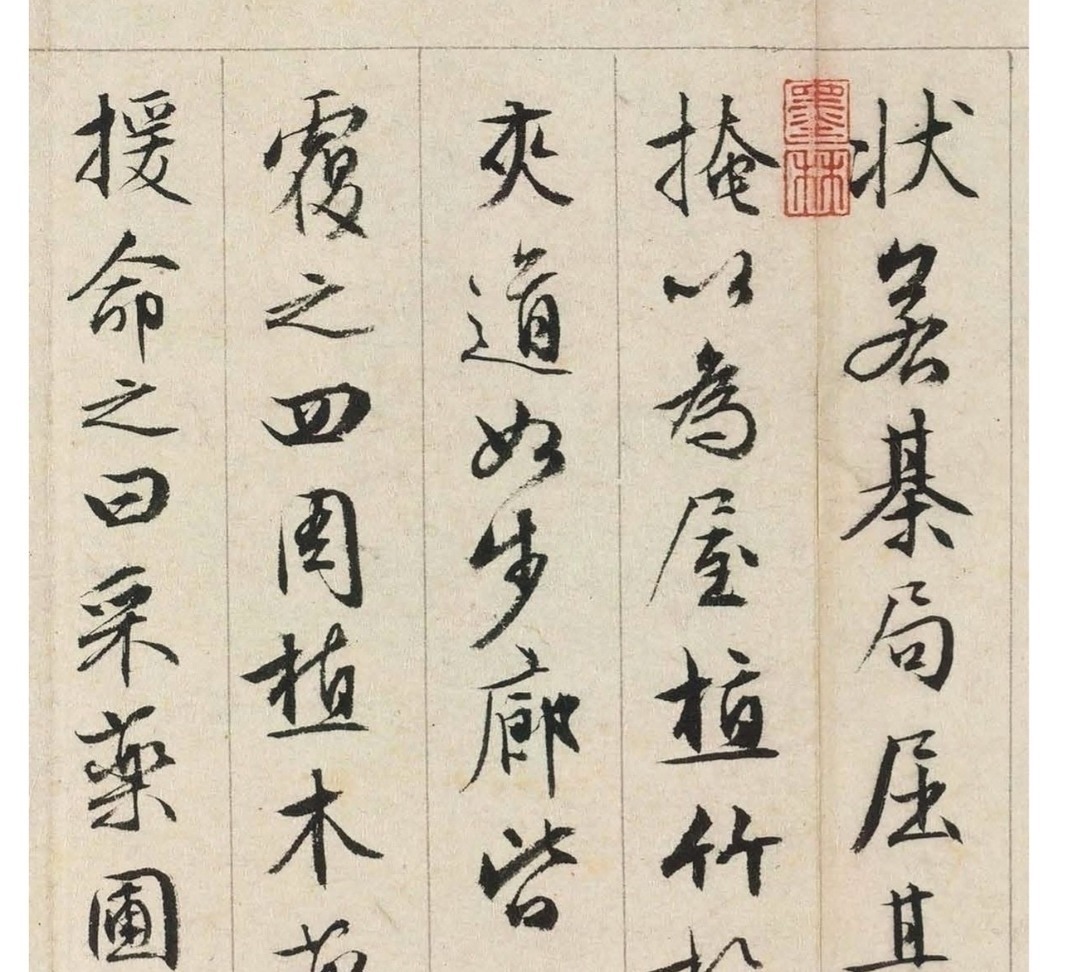 状若棊局屈其
掩以為屋植竹
夾道如步廊皆
覆之四周植木
援命之曰采藥圃
墨林